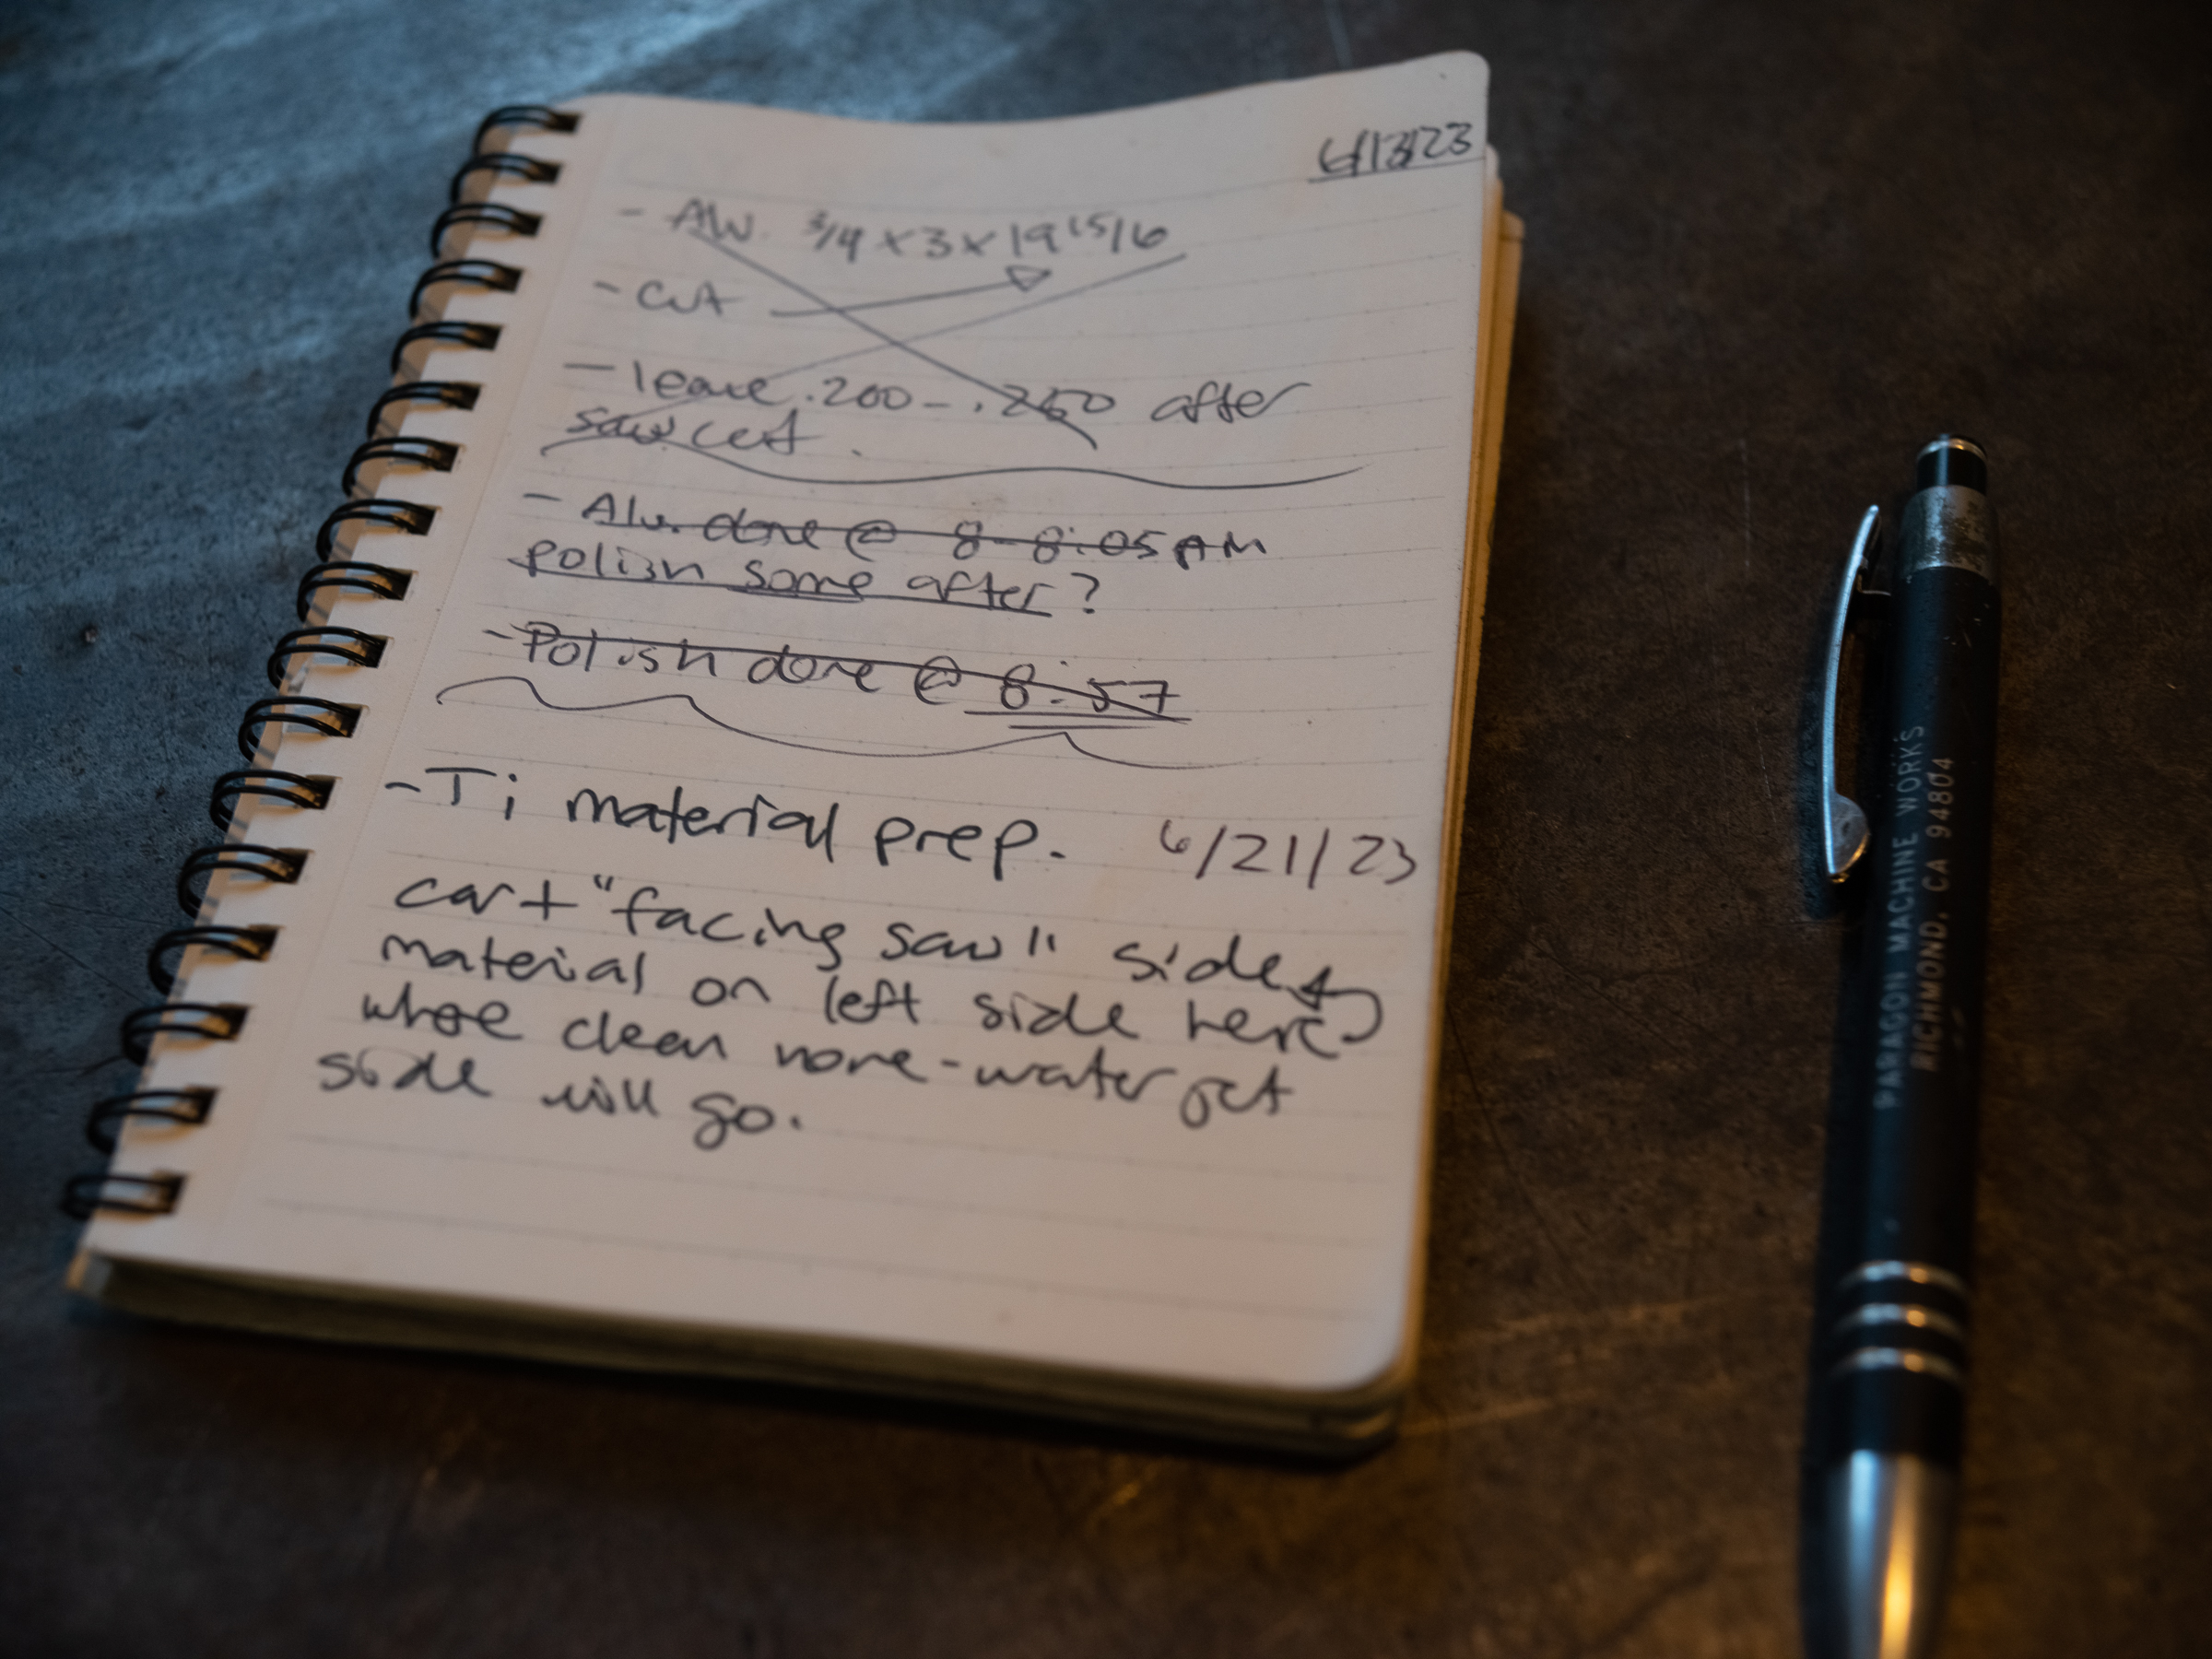 6/13/23
- Alu. 3/4 x 3 x 19 15/16
- Cut
- leave .200 - .250 after
saw cut.
- Alu. done @ 8-8:05 AM
polish some after?
- Polish done @ 8:57
- Ti material prep. 6/21/23
cart "facing saw" side
material on left side here
where clean none-water jet
side will go.
PARAGON MACHINE WORKS
RICHMOND, CA 94804